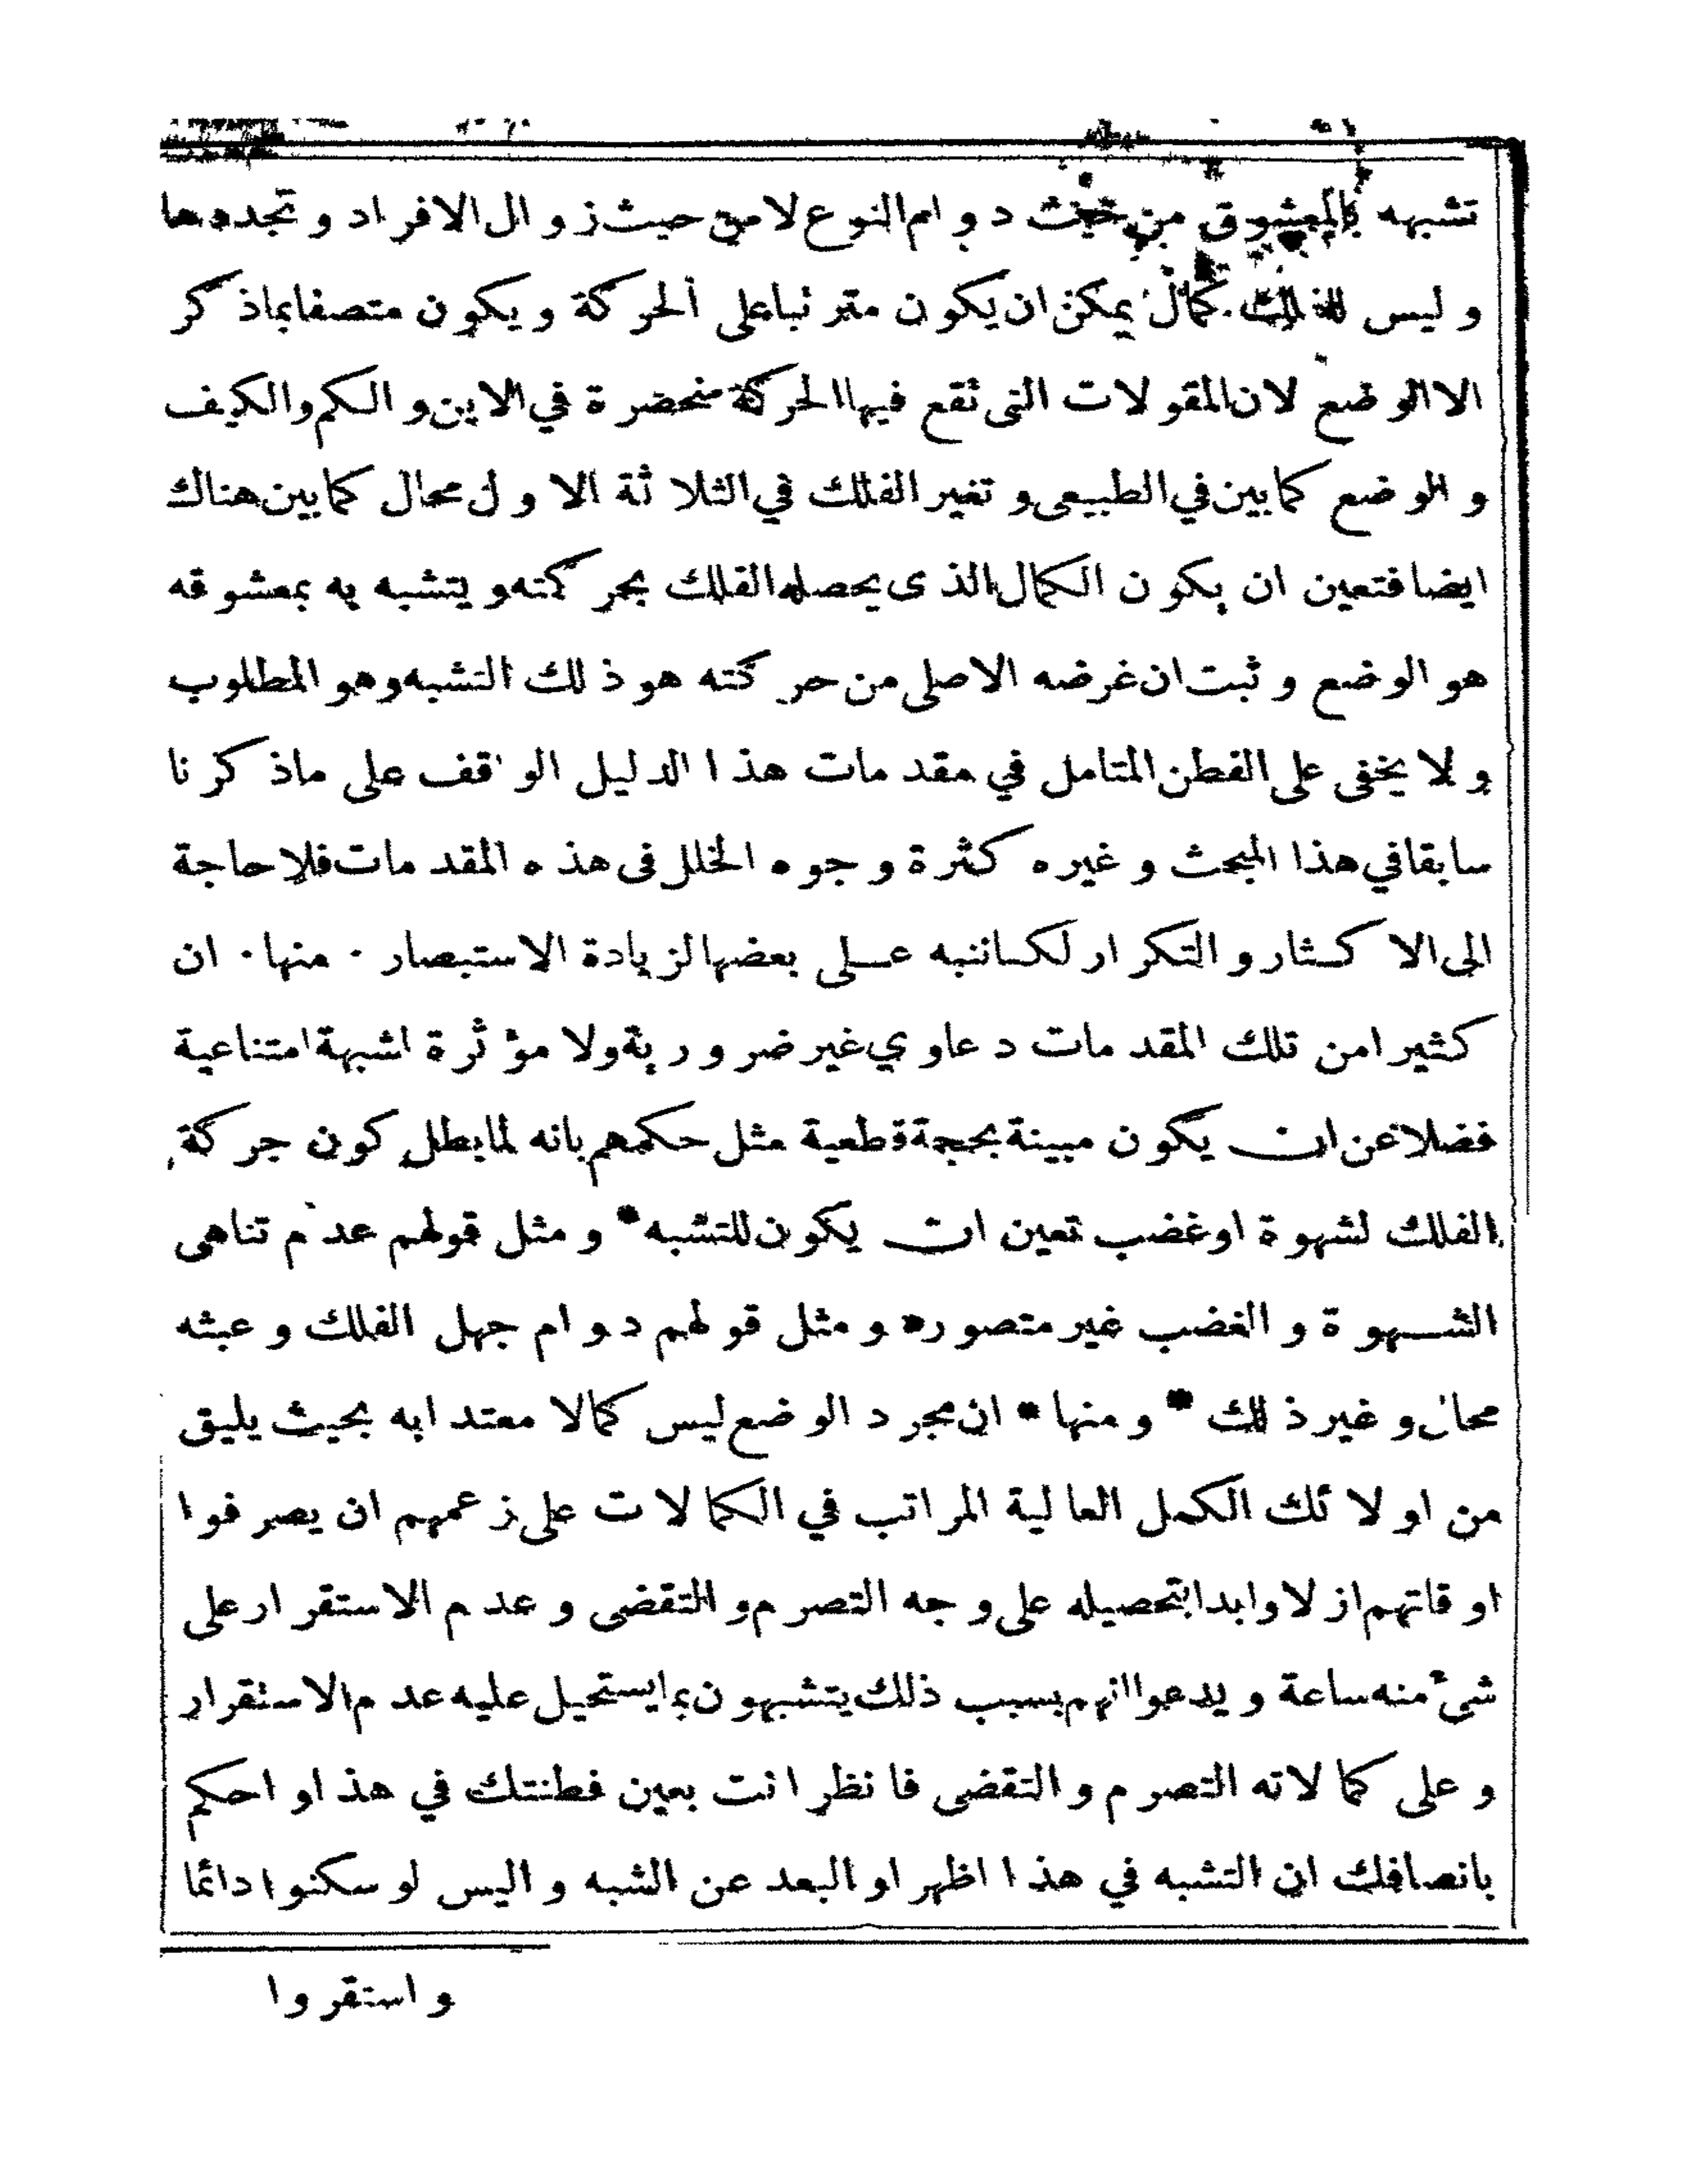 تشبهه بالمعشوق من حيث دوام النوع لا من حيث زوال الافراد و تجددها
و ليس للفلك كمال يمكن ان يكون مترتبا على الحركة ويكون متصفا بماذكر
الا الوضع لان المقولات التى تقع فيها الحركة منحصرة في الاين و الكم والكيف
و الوضع كمابين في الطبيعى و تغير الفلك في الثلاثة الاول محال كمابين هناك
ايضا فتعين ان يكون الكمال الذى يحصله الفلك بحركته و يتشبه به بمعشوقه
هو الوضع و ثبت ان غرضه الاصلى من حركته هو ذلك التشبه وهو المطلوب
ولا يخفى على الفطن المتامل في مقدمات هذا الدليل الواقف على ماذكرنا
سابقا في هذا المبحث و غيره كثرة وجوه الخلل فى هذه المقدمات فلاحاجة
الى الاكثار و التكرار لكناننبه عــلى بعضها لزيادة الاستبصار · منها · ان
كثيرا من تلك المقدمات دعاوي غير ضرورية ولا مؤثرة اشبهة امتناعية
فضلا عن ان يكون مبينة بحجة قطعية مثل حكمهم بانه لمابطل كون حركة
الفلك لشهوة اوغضب تعين ان يكون للتشبه * و مثل قولهم عدم تناهى
الشــهوة و الغضب غير متصور * و مثل قولهم دوام جهل الفلك و عبثه
محال و غير ذلك * و منها * ان مجرد الوضع ليس كمالا معتدا به بحيث يليق
من اولائك الكمل العالية المراتب في الكمالات على زعمهم ان يصرفوا
اوقاتهم ازلا وابدا بتحصيله على وجه التصرم و التقضى و عدم الاستقرار على
شئ منه ساعة و يدعوا انهم بسبب ذلك يتشبهون بمايستحيل عليه عدم الاستقرار
و على كمالاته التصرم و التقضى فانظر انت بعين فطنتك في هذا و احكم
بانصافك ان التشبه في هذا اظهر او البعد عن الشبه و اليس لو سكنوا دائما
و استقروا